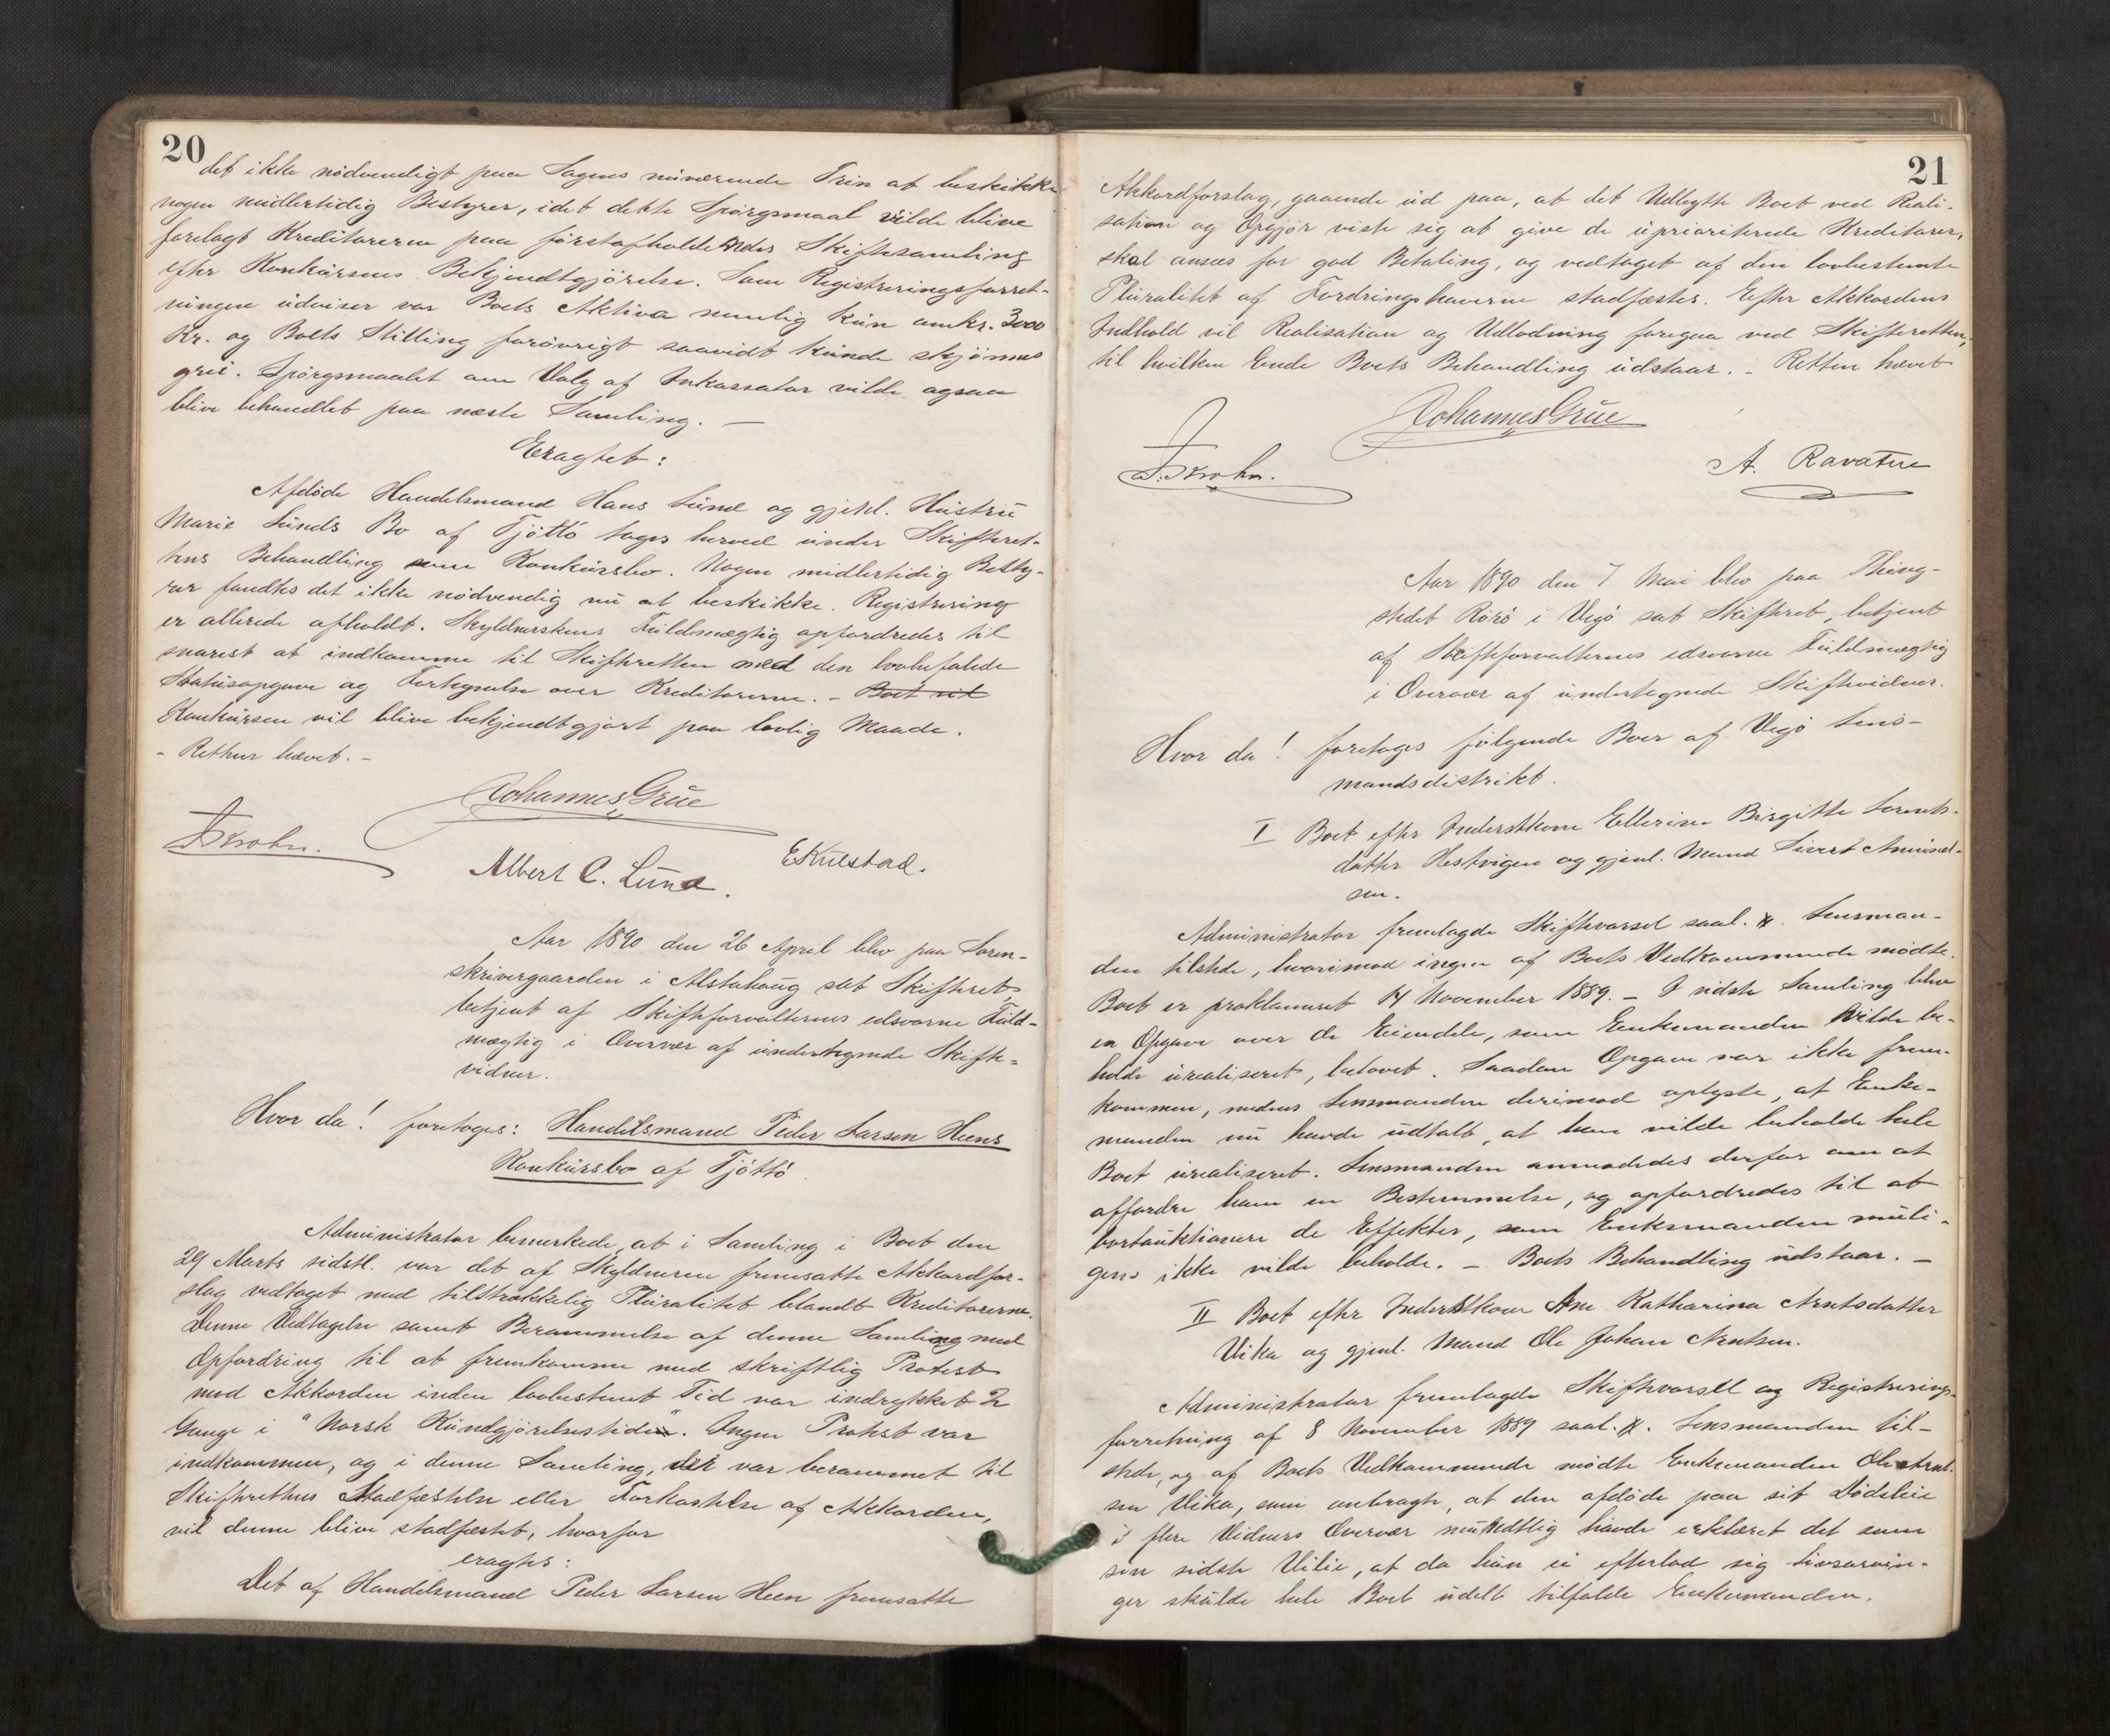 20
det ikke nödvendigt paa Sagens nuværende Trin at beskikke
nogen midlertidig Bestyrer, idet dette Spörgsmaal vilde blive
forelagt Kreditorerne paa förstafholdendes Skiftesamling
efter Konkursens Bekjendtgjörelse. Som Registreringsforret-
ningen udviser var Boets Aktiva nemlig kun omkr. 3000
Kr. og Boets Stilling forövrigt saavidt kunde skjönnes
grei. Spörgsmaalet om Valg af Inkassator vilde ogsaa
blive behandlet paa næste Samling. —
Eragtet:
Afdöde Handelsmand Hans Lund og gjenl. Hustru
Marie Lunds Bo af Tjöttö tages herved under Skifteret-
tens Behandling som Konkursbo. Nogen midlertidig Besty-
rer fandtes det ikke nödvendig nu at beskikke. Registrering
er allerede afholdt. Skyldnerskens Fuldmægtig opfordredes til
snarest at indkomme til Skifteretten med den lovbefalede
Statusopgave og Fortegnelse over Kreditorerne. – Boet vil
Konkursen vil blive bekjendtgjort paa lovlig Maade.
- Retten hævet. -
Johannes Grüe
J. Krohn.
Albert C. Lund.
E Kulstad.
Aar 1890 den 26 April blev paa Soren-
skrivergaarden i Alstahaug sat Skifteret,
betjent af Skifteforvalterens edsvorne Fuld-
mægtig i Overvær af undertegnede Skifte-
vidner.
Hvor da! foretoges: Handelsmand Peder Larsen Heens
Konkursbo af Tjöttö.
Administrator bemerkede, at i Samling i Boet den
29 Marts sidstl. var det af Skyldneren fremsatte Akkordfor-
slag vedtaget med tilstrækkelig Pluralitet blandt Kreditorerne.
Denne Vedtagelse samt Berammelse af denne Samling med
Opfordring til at fremkomme med skriftlig Protest
mod Akkorden inden lovbestemt Tid var indrykket 2
Gange i "Norsk Kundgjörelsestiden". Ingen Protest var
indkommen, og i denne Samling, der var berammet til
Skifterettens Stadfæstelse eller Forkastelse af Akkorden,
vil denne blive stadfæstet, hvorfor
eragtes:
Det af Handelsmand Peder Larsen Heen fremsatte
21
Akkordforslag, gaaende ud paa, at det Udbytte Boet ved Reali-
sation og Opgjör viste sig at give de uprioriterede Kreditorer,
skal ansees for god Betaling, og vedtaget af den lovbestemte
Pluralitet af Fordringshaverne stadfæstes. Efter Akkordens
Indhold vil Realisation og Udlodning foregaa ved Skifteretten,
til hvilken Ende Boets Behandling udstaar. – Retten hævet
Johannes Grüe
J. Krohn.
A. Ravatne
Aar 1890 den 7 Mai blev paa Thing-
stedet Rörö i Vegö sat Skifteret, betjent
af Skifteforvalterens edsvorne Fuldmægtig
i Overvær af undertegnede Skiftevidner.
Hvor da! foretoges fölgende Boer af Vegö Lens-
mandsdistrikt.
I Boet efter Inderstkone Ellerine Birgitte Lorents-
datter Hestvigen og gjenl. Mand Sivert Amund-
sen.
Administrator fremlagde Skiftevarsel saal. Lensman-
den tilstede, hvorimod ingen af Boets Vedkommende mödte.
Boet er proklameret 14 November 1889. – I sidste Samling blev
en Opgave over de Eiendele, som Enkemanden vilde be-
holde urealiseret, lovet. Saadan Opgave var ikke frem-
kommen, medens Lensmanden derimod oplyste, at Enke-
manden nu havde udtalt, at han vilde beholde hele
Boet urealiseret. Lensmanden anmodedes derfor om at
affordre ham en Bestemmelse, og opfordredes til at
bortauktionere de Effekter, som Enkemanden muli-
gens ikke vilde beholde. – Boets Behandling udstaar. –
II Boet efter Inderstkone Ane Katharina Arntsdatter
Vika og gjenl. Mand Ole Johan Arntsen.
Administrator fremlagde Skiftevarsel og Registrerings-
forretning af 8 November 1889 saal. Lensmanden til-
stede, og af Boets Vedkommende mödte Enkemanden Ole Arnt-
sen Vika, som anbragte, at den afdöde paa sit Dödsleie
i flere Vidners Overvær mundtlig havde erklæret det som
sin sidste Vilie, at da hun ei efterlod sig Livsarvin-
ger skulde hele Boet udelt tilfalde Enkemanden.